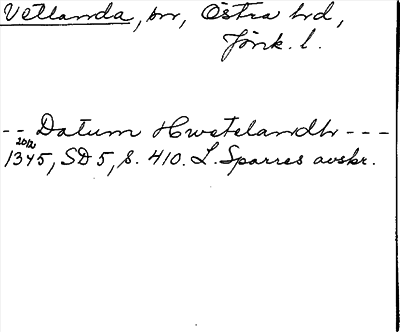 Vetlanda, sn, Östra hd,
Jönk. l.
-- Datum Hwetelandh ---
20/12
1345, SD 5, s. 410. L. Sparres avskr.